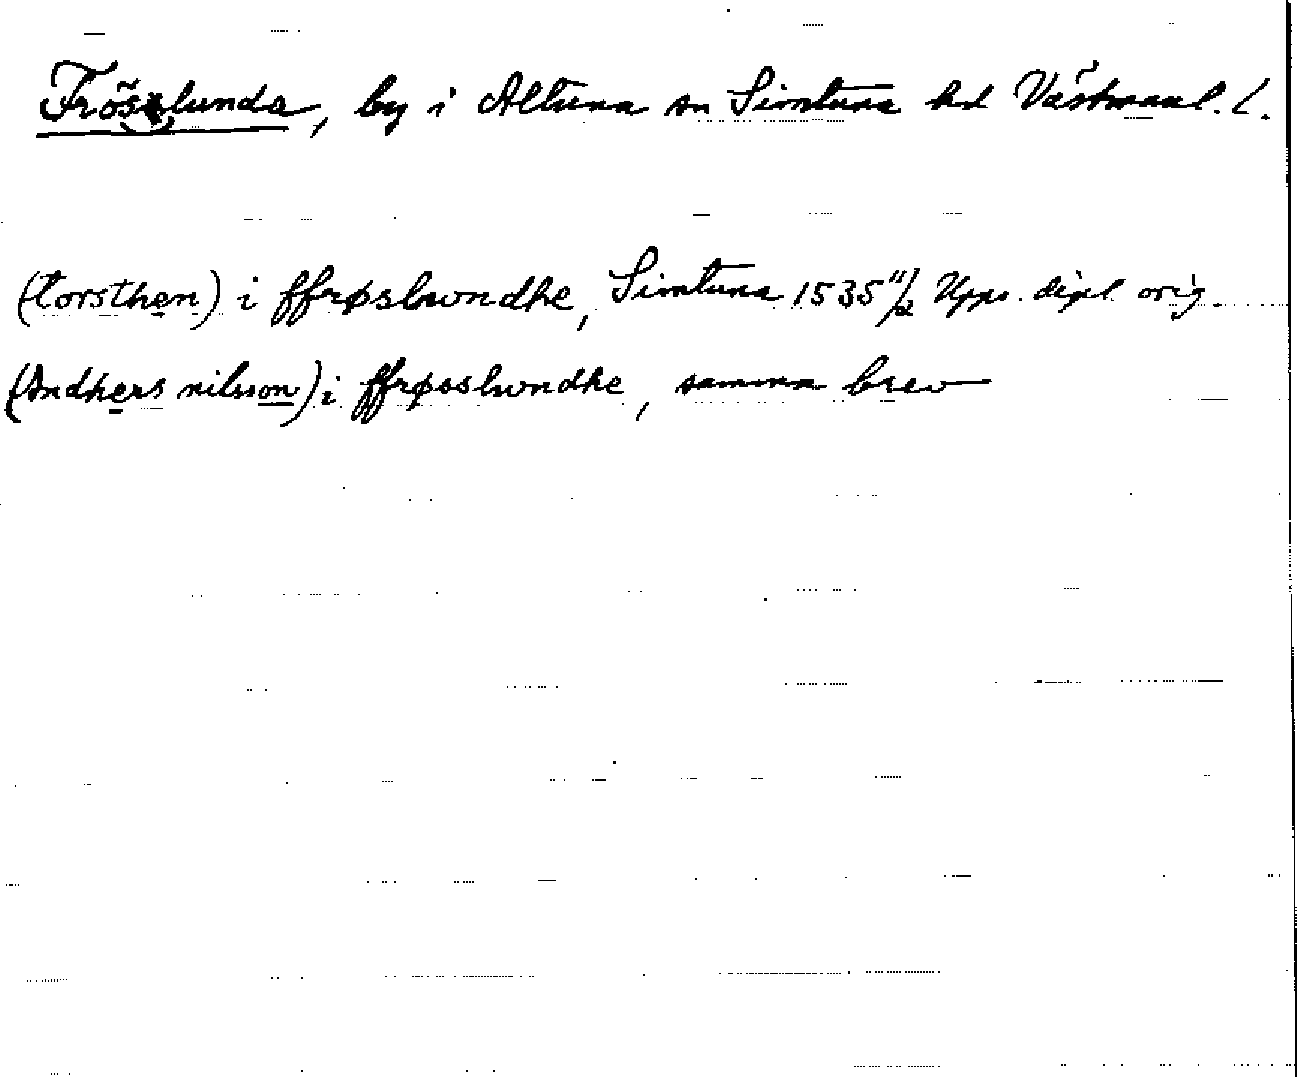 Fröslunda, by i Altuna sn Simtuna hd Västmanl. l.
(torsthen) i ffrøslwndhe, Simtuna 1535 11/2 Upps. dipl. orig.
(Andhers nilsson) i ffrøsslwndhe, samma brev